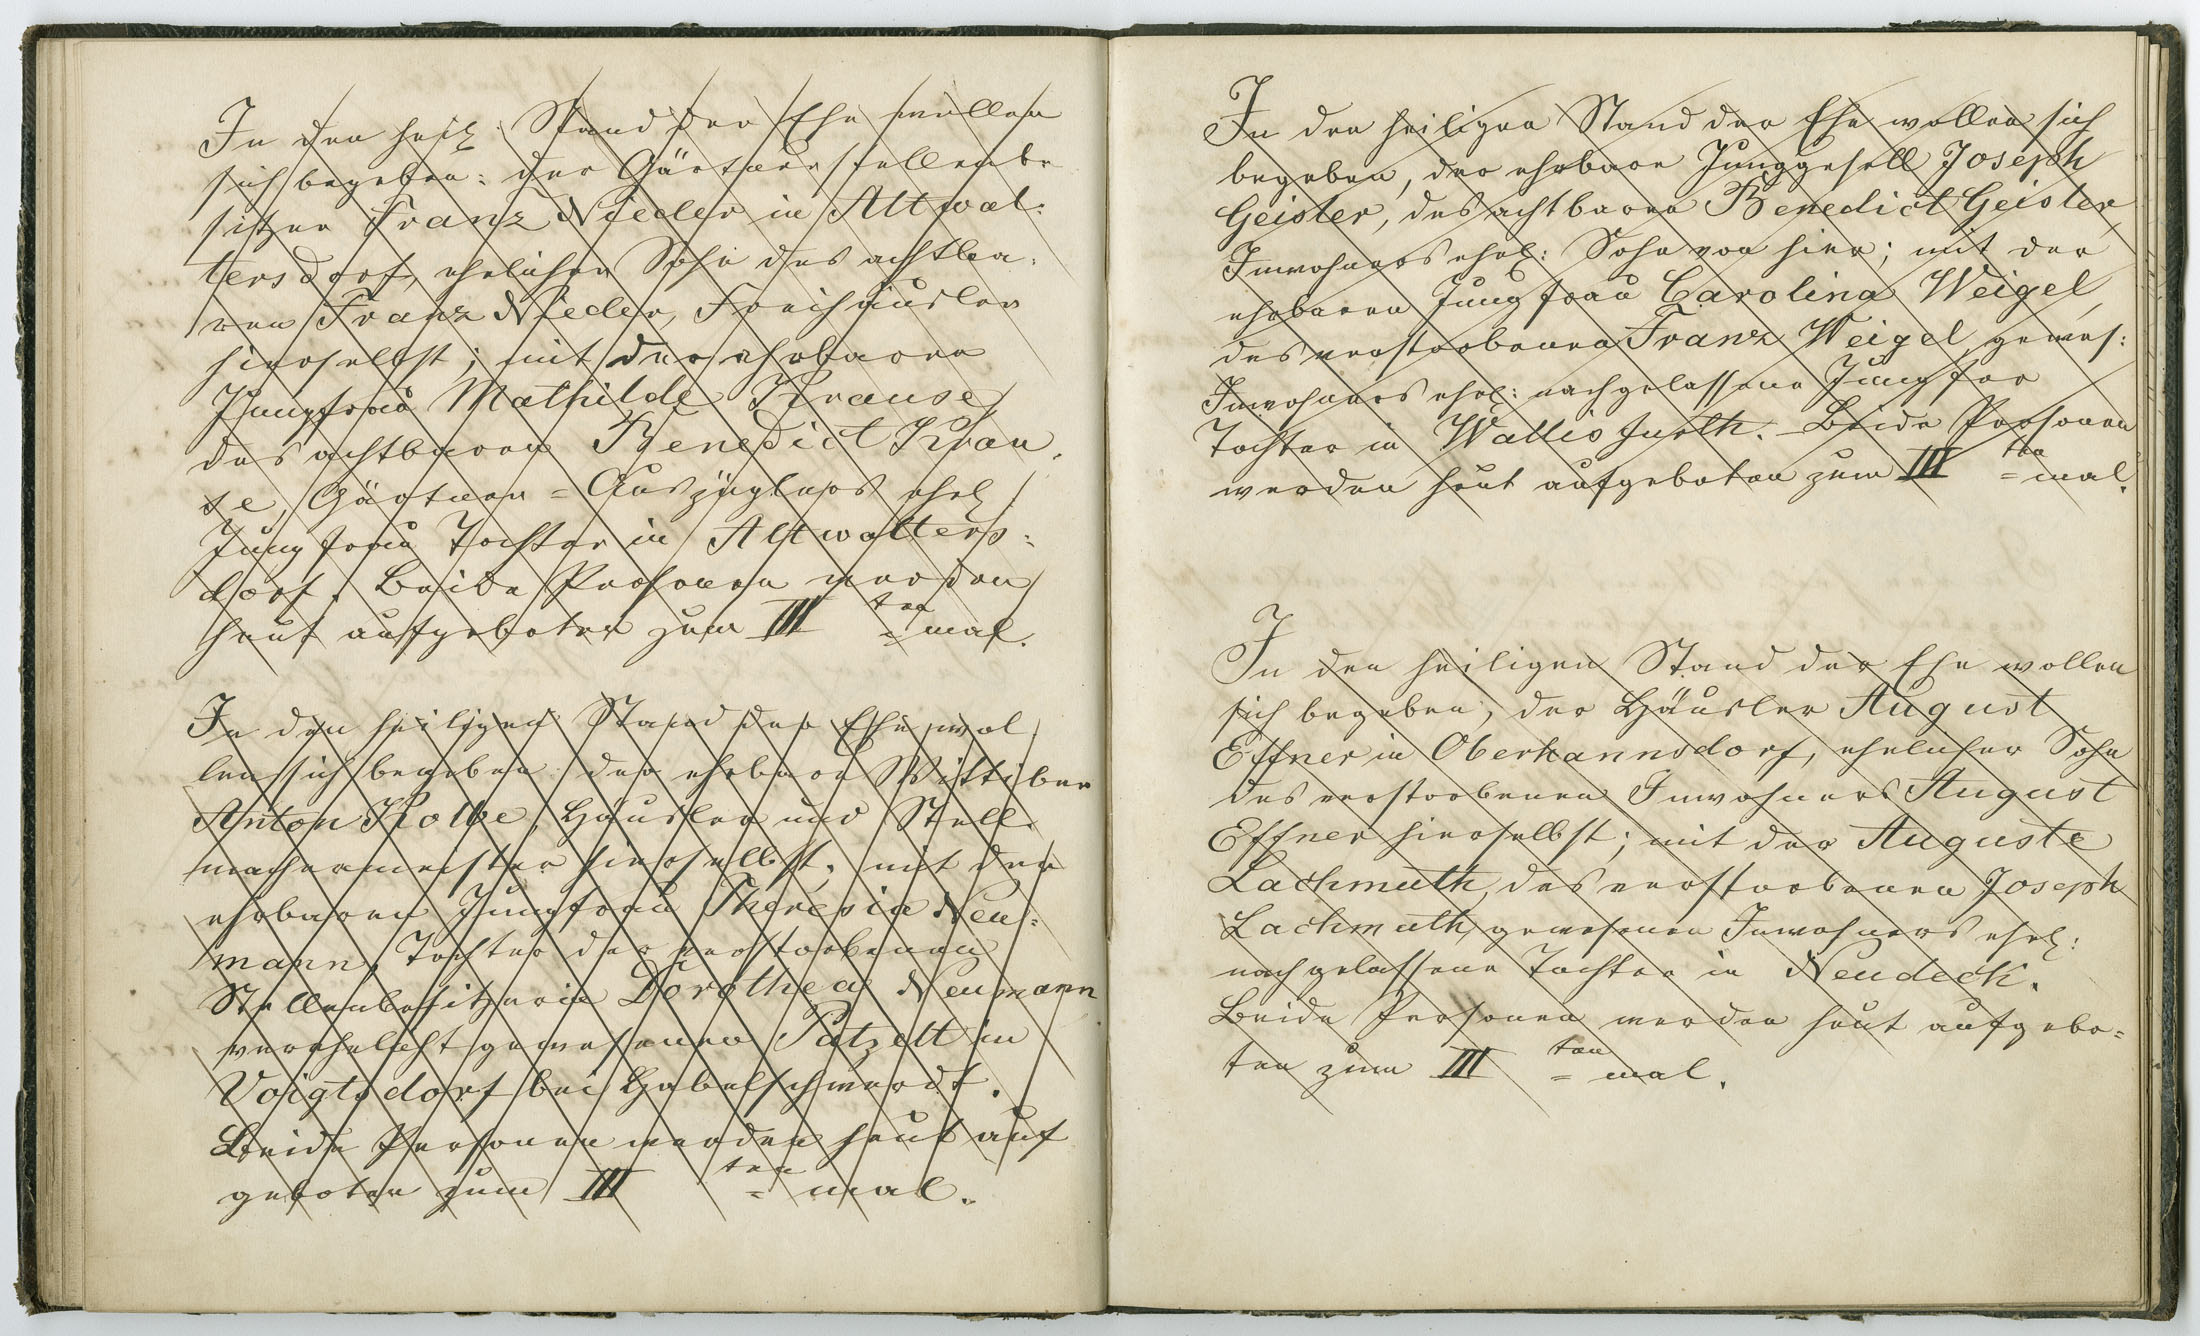 In den heil. Stand der Ehe wollen
sich begeben: der Gärtnerstellenbe
sitzer Franz Nieder in Altwal:
tersdorf, ehelicher Sohn des achtba:
ren Franz Nieder, Freihäusler
hierselbst; mit der ehrbaren
Jungfrau Mathilde Krause,
des achtbaren Benedict Krau,
se, Gärtner=Auszüglers ehel.
Jungfrau Tochter in Altwalters:
dorf. Beide Personen werden
heut aufgeboten zum III =ten mal.
In den heiligen Stand der Ehe wol
len sich begeben: der ehrbare Wittiber
Anton Kolbe, Häusler und Stell=
machermeister hierselbst; mit der
ehrbaren Jungfrau Theresia Neu=
mann, Tochter der verstorbenen
Stellenbesitzerin Dorothea Neumann
verehelicht gewesenen Patzelt in
Voigtsdorf bei Habelschwerdt.
Beide Personen werden heut auf
geboten zum III =ten mal.
In den heiligen Stand der Ehe wollen sich
begeben, der ehrbare Junggesell Joseph
Geisler, des achtbaren Benedict Geisler,
Inwohners ehel: Sohn von hier; mit der
ehrbaren Jungfrau Carolina Weigel,
des verstorbenen Franz Weigel, gewes:
Inwohners ehel: nachgelassene Jungfer
Tochter in Wallisfurth. Beide Personen
werden heut aufgeboten zum III =ten mal.
In den heiligen Stand der Ehe wollen
sich begeben, der Häusler August
Effner in Oberhannsdorf, ehelicher Sohn
des verstorbenen Inwohners August
Effner hierselbst; mit der Auguste
Lachmuth, des verstorbenen Joseph
Lachmuth, gewesenen Inwohners ehel:
nachgelassene Tochter in Neudeck.
Beide Personen werden heut aufgebo=
ten zum III =ten mal.